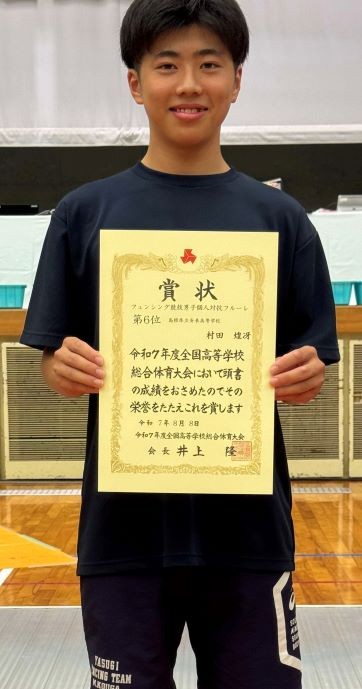 賞状
フェンシング競技男子個人対抗フルーレ
第6位 島根県立安来高等学校
村田 煌冴
令和7年度全国高等学校
総合体育大会において頭書
の成績をおさめたのでその
栄誉をたたえこれを賞します
令和 7年8月8日
令和7年度全国高等学校総合体育大会
会長 井上 隆
YASUGI
FENCING TEAM
M.KOUGA